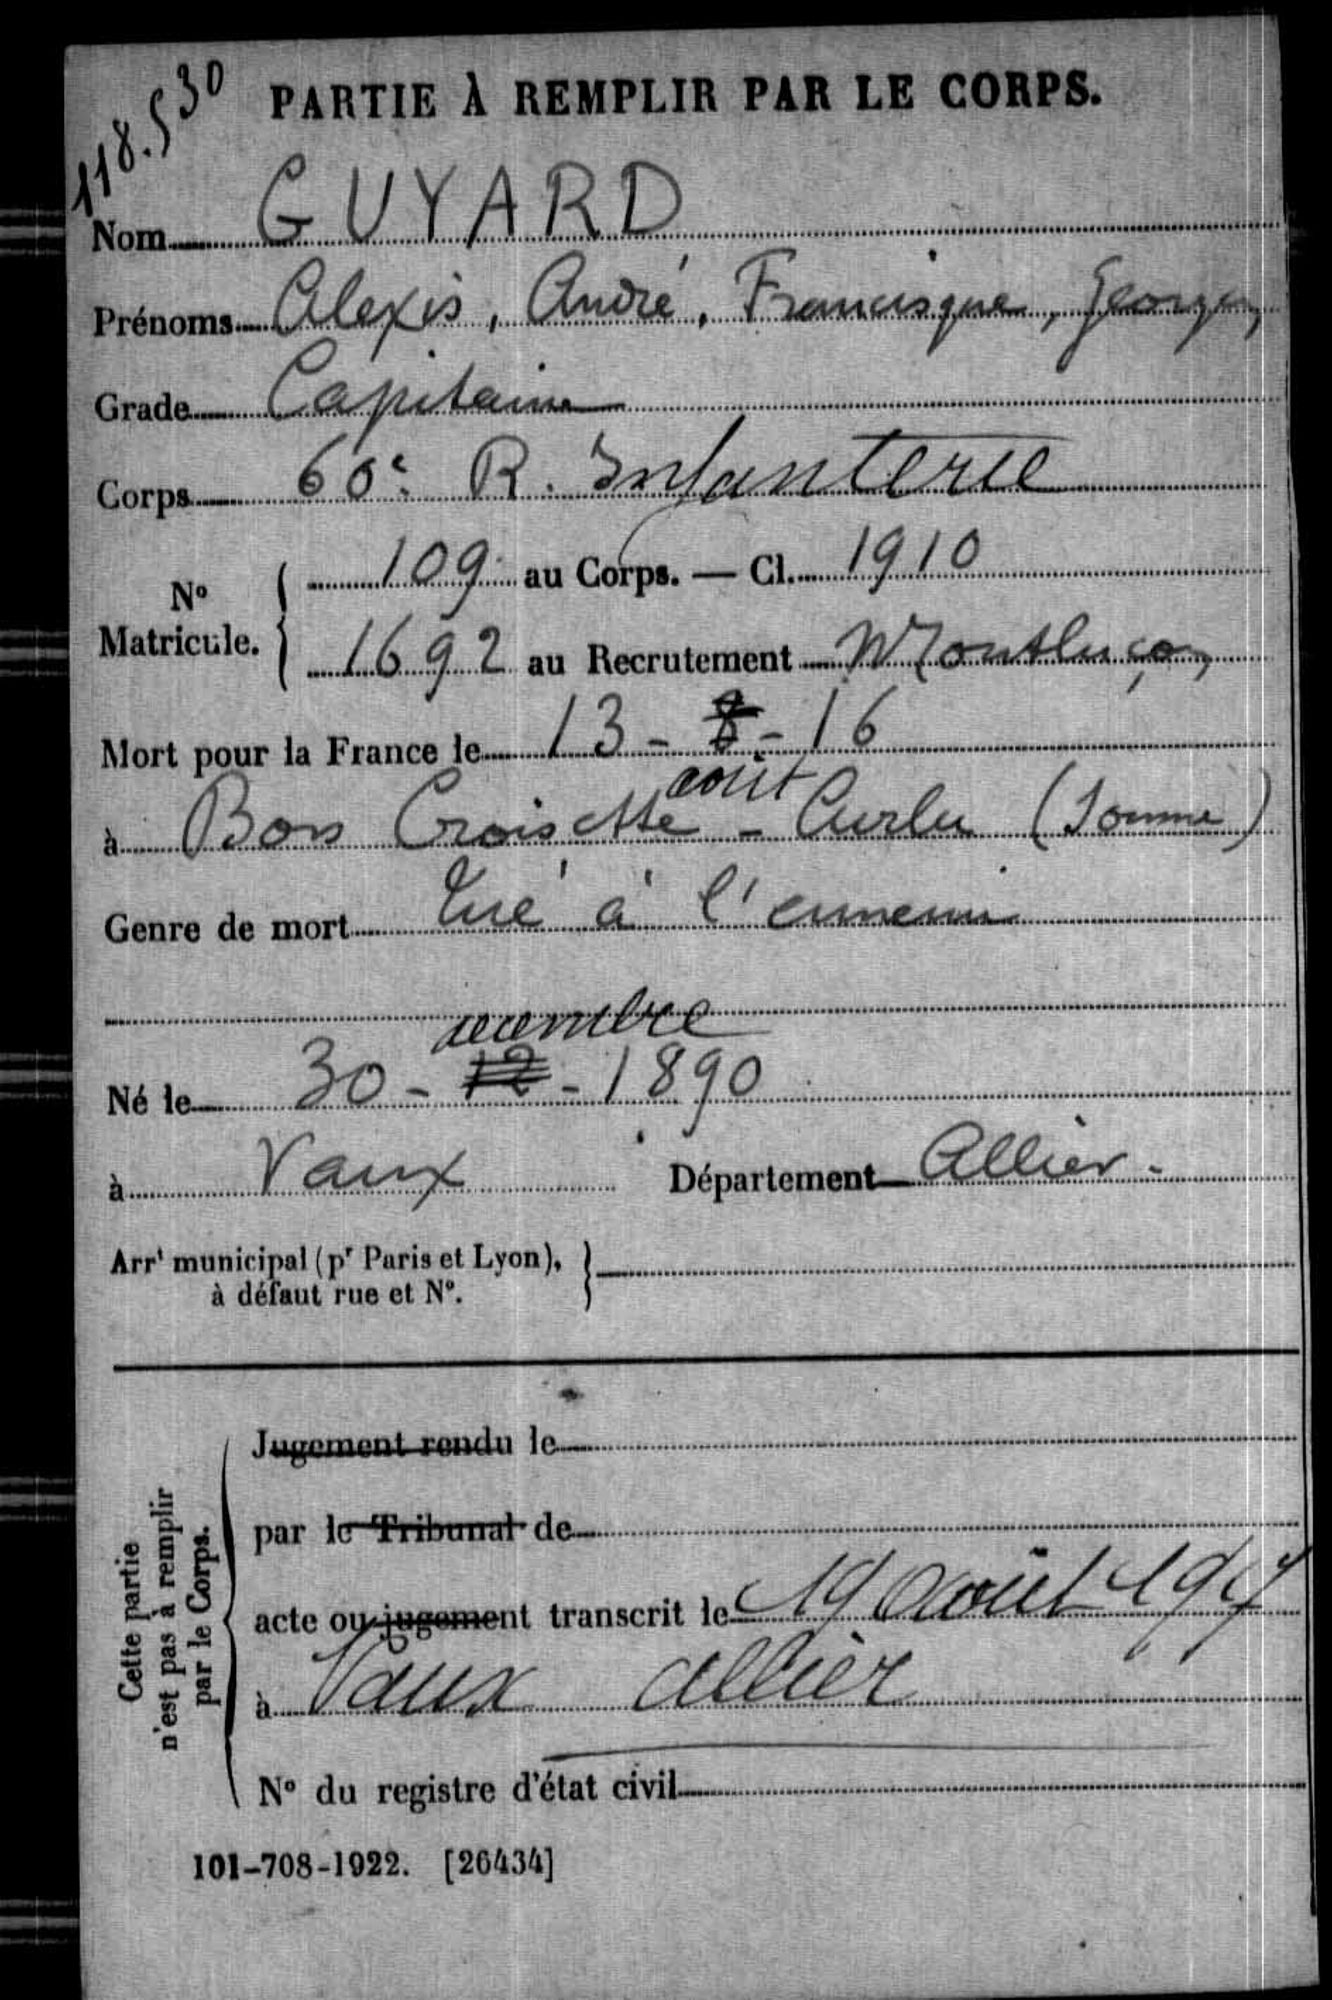 118.530
PARTIE À REMPLIR PAR LE CORPS.
Nom GUYARD
Prénoms Alexis, André, Francisque, Georges
Grade Capitaine
Corps 60e R. Infanterie
No Matricule. { 109 au Corps. — Cl. 1910
1692 au Recrutement Montluçon
Mort pour la France le 13 - 8 - 16
août
à Bois Croisette - Curlu (Somme)
Genre de mort Tué à l'ennemi
décembre
Né le 30 - 12 - 1890
à Vaux Département Allier.
Arrt municipal (pr Paris et Lyon), }
à défaut rue et No.
Cette partie
n'est pas à remplir
par le Corps.
Jugement rendu le
par le Tribunal de
acte ou jugement transcrit le 19 Août 1917
à Vaux Allier
No du registre d'état civil
101-708-1922. [26434]